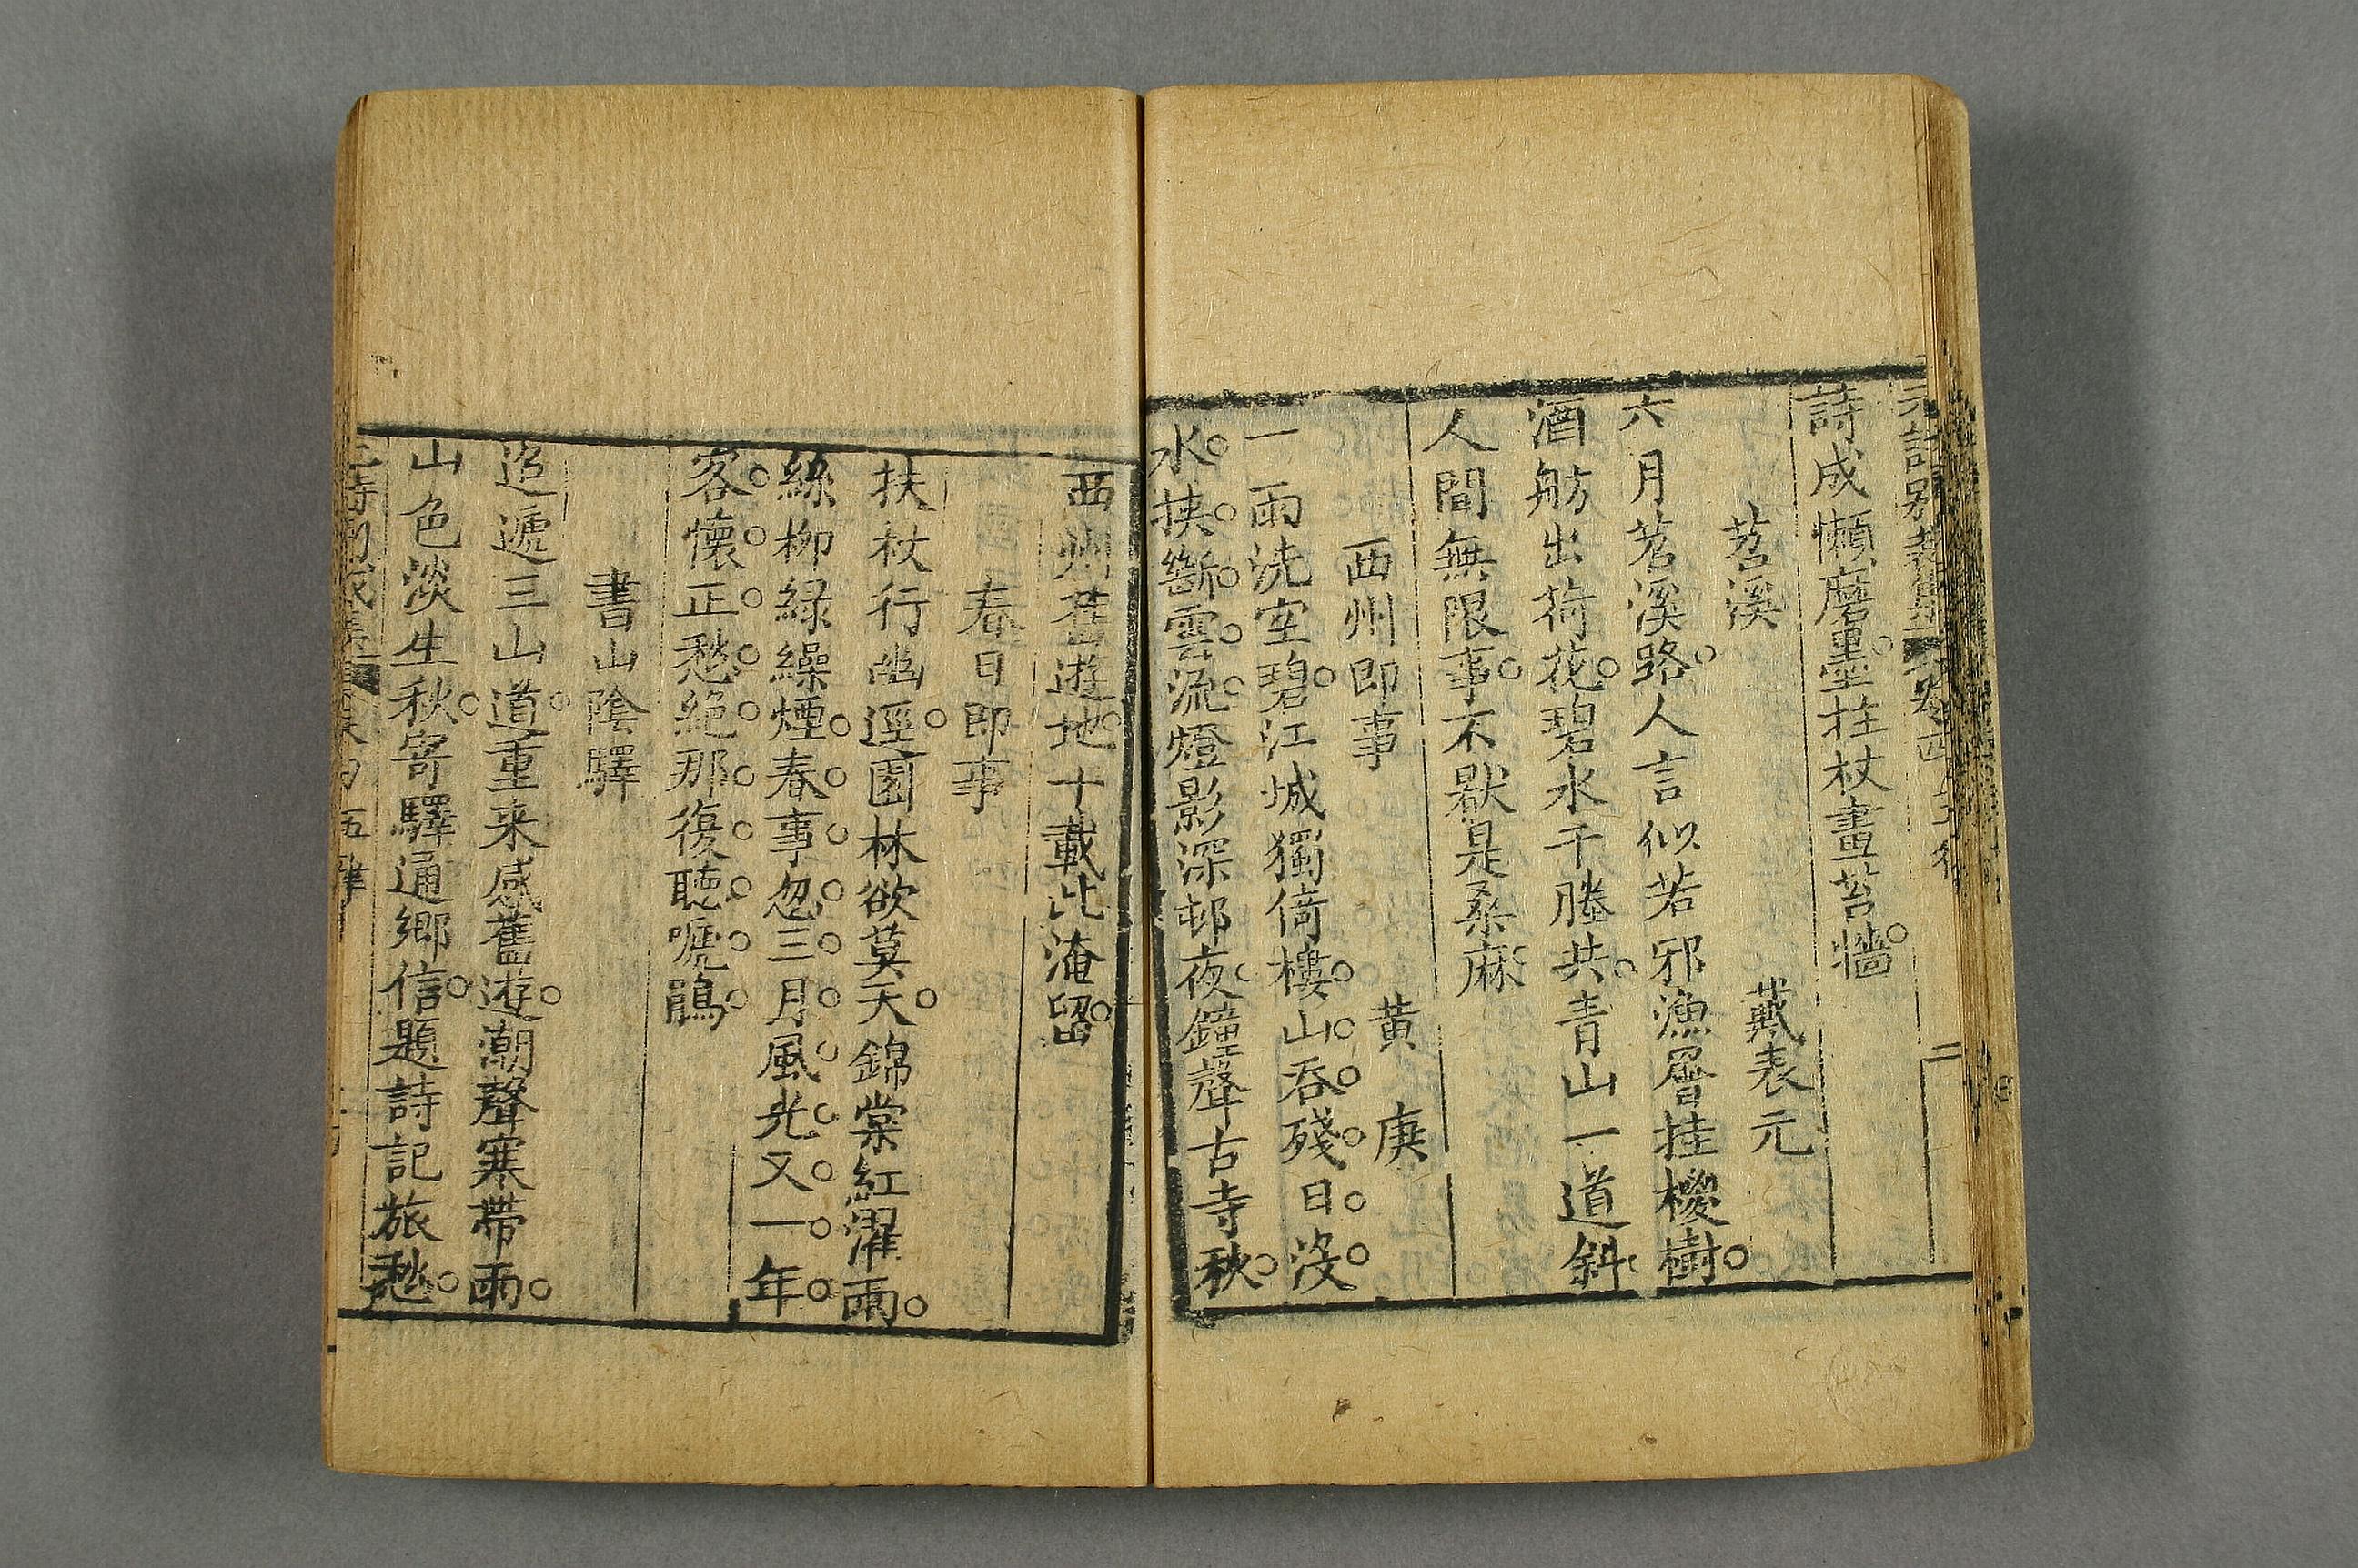 元詩別裁集 卷四 五律 二
詩成懶磨墨拄杖畫苔牆
苕溪 戴表元
六月苕溪路人言似若邪漁罾挂椶樹
酒舫出荷花碧水千塍共青山一道斜
人間無限事不厭是桑麻
西州即事 黃庚
一雨洗空碧江城獨倚樓山吞殘日沒
水挾斷雲流燈影深邨夜鐘聲古寺秋
西州舊遊地十載此淹留
春日即事
扶杖行幽逕園林欲莫天錦棠紅濯雨
絲柳綠繰煙春事忽三月風光又一年
客懷正愁絕那復聽嗁鵑
書山陰驛
迢遞三山道重来感舊遊潮聲寒帶雨
山色淡生秋寄驛通鄉信題詩記旅愁
五律